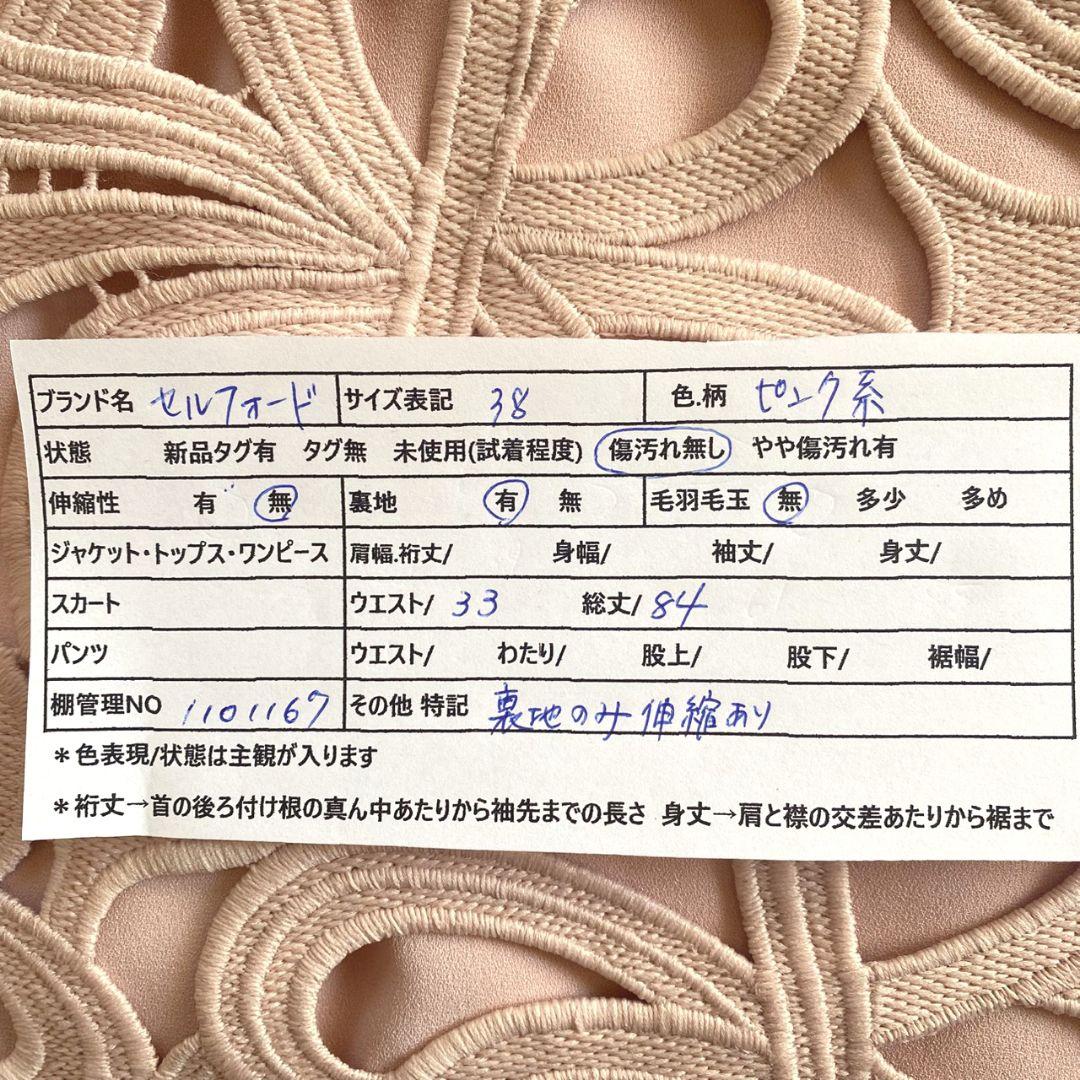 ブランド名 セルフォード サイズ表記 38 色.柄 ピンク系
状態 新品タグ有 タグ無 未使用(試着程度) 傷汚れ無し やや傷汚れ有
伸縮性 有 無 裏地 有 無 毛羽毛玉 無 多少 多め
ジャケット・トップス・ワンピース 肩幅.裄丈/ 身幅/ 袖丈/ 身丈/
スカート ウエスト/ 33 総丈/ 84
パンツ ウエスト/ わたり/ 股上/ 股下/ 裾幅/
棚管理NO 1101167 その他 特記 裏地のみ伸縮あり
＊色表現/状態は主観が入ります
＊裄丈→首の後ろ付け根の真ん中あたりから袖先までの長さ 身丈→肩と襟の交差あたりから裾まで